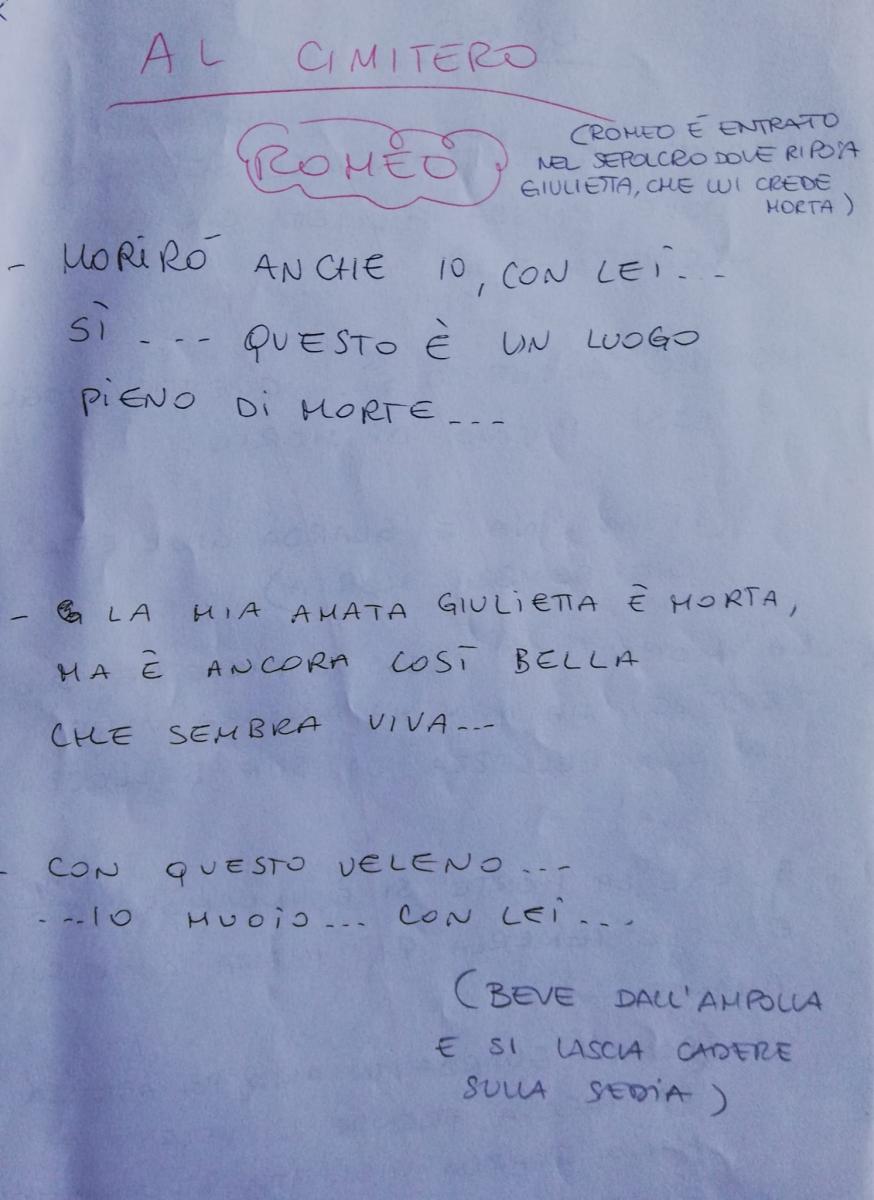 AL CIMITERO
ROMEO
(ROMEO È ENTRATO
NEL SEPOLCRO DOVE RIPOSA
GIULIETTA, CHE LUI CREDE
MORTA)
- MORIRÒ ANCHE IO, CON LEI...
SÌ .... QUESTO È UN LUOGO
PIENO DI MORTE...
- LA MIA AMATA GIULIETTA È MORTA,
MA È ANCORA COSÌ BELLA
CHE SEMBRA VIVA...
- CON QUESTO VELENO...
...IO MUOIO... CON LEI...
(BEVE DALL'AMPOLLA
E SI LASCIA CADERE
SULLA SEDIA)